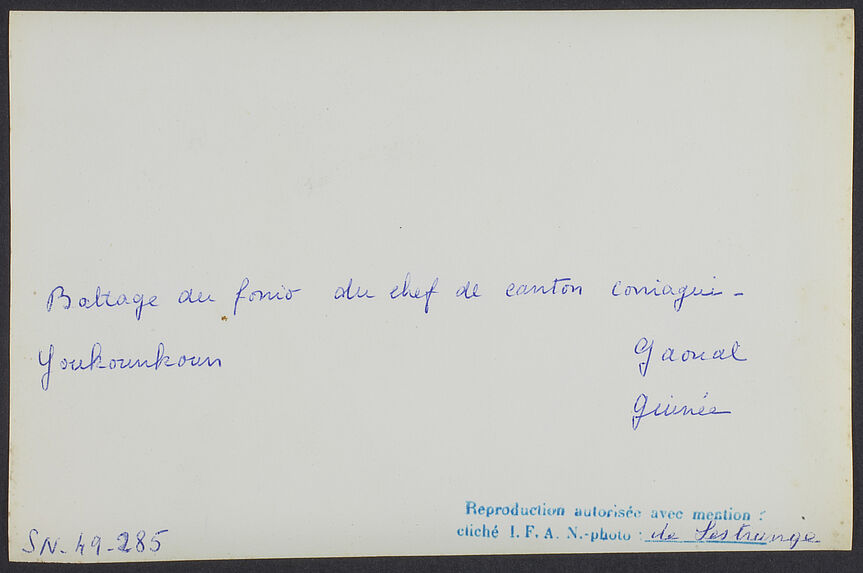 Battage du fonio du chef de canton coniagui -
Youkounkoun
Gaoual
Guinée
Reproduction autorisée avec mention :
cliché I. F. A. N.-photo : de Lestrange
SN-49-285